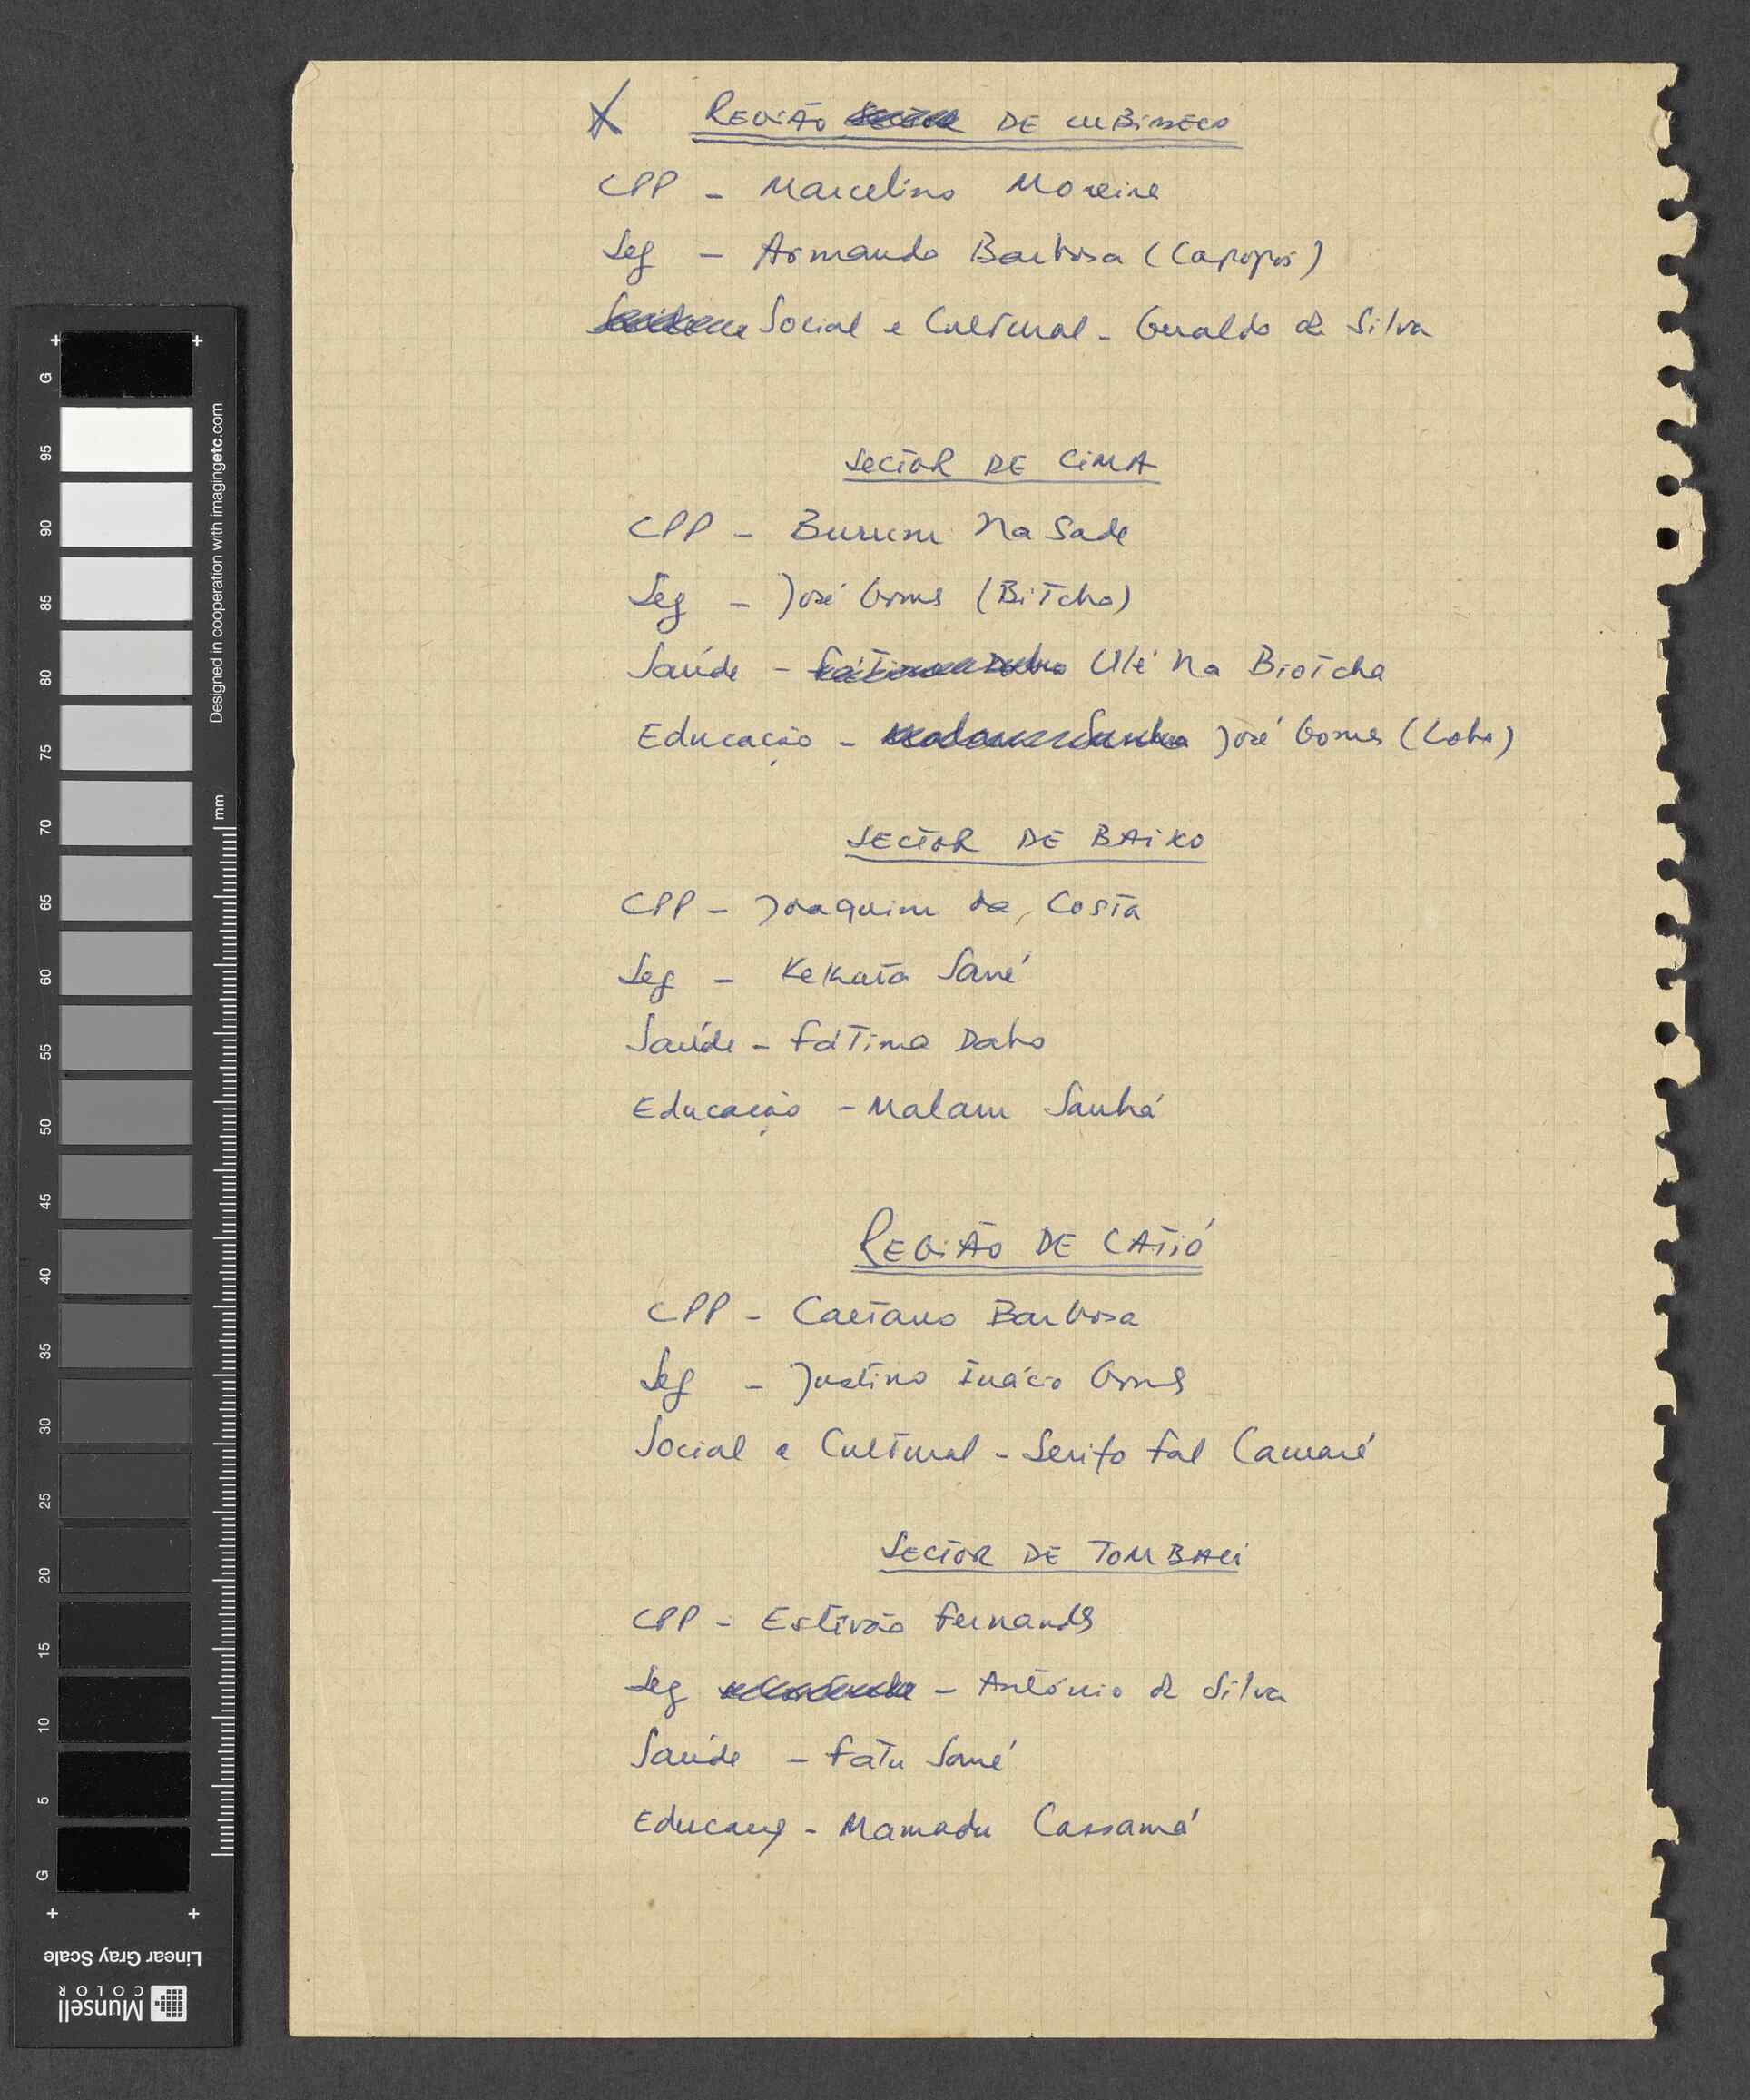 REGIÃO DE CUBISSECO
CPP - Marcelino Moreira
Seg - Armando Barbosa (Capopós)
Social e Cultural - Geraldo da Silva
SECTOR DE CIMA
CPP - Burum Na Sade
Seg - José Gomes (Bitcho)
Saúde - Fátima Dabo Ulé Na Biotcha
Educação - Malam Sanha José Gomes (Lobo)
SECTOR DE BAIXO
CPP - Joaquim da Costa
Seg - Kekuta Sané
Saúde - Fátima Dabo
Educação - Malam Sanhá
REGIÃO DE CATIÓ
CPP - Caetano Barbosa
Seg - Justino Inácio Gomes
Social e Cultural - Serifo Fal Camará
SECTOR DE TOMBALI
CPP - Estêvão Fernandes
Seg - António da Silva
Saúde - Fatu Sané
Educaç - Mamadu Cassamá
G 95 90 85 80 75 70 65 60 55 50 45 40 35 30 25 20 15 10 5 G
Designed in cooperation with imagingetc.com
mm
Linear Gray Scale
Munsell
COLOR